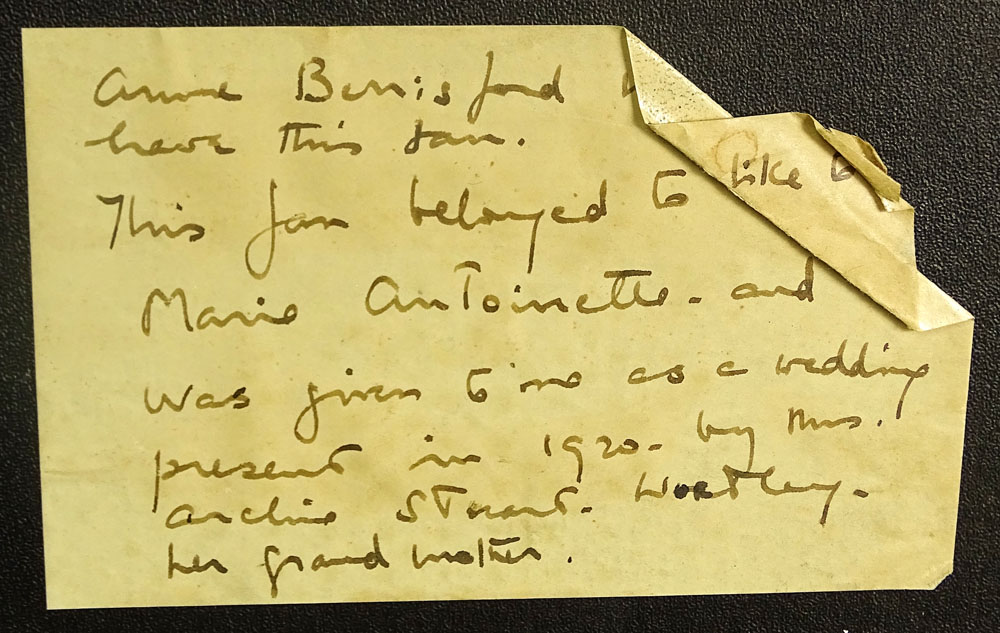 Anne Berrisford
have this fan.
like to
This fan belonged to
Marie Antoinette - and
was given to me as a wedding
present in 1920 - by Mrs.
Archie Stuart - Wortley -
her grandmother.